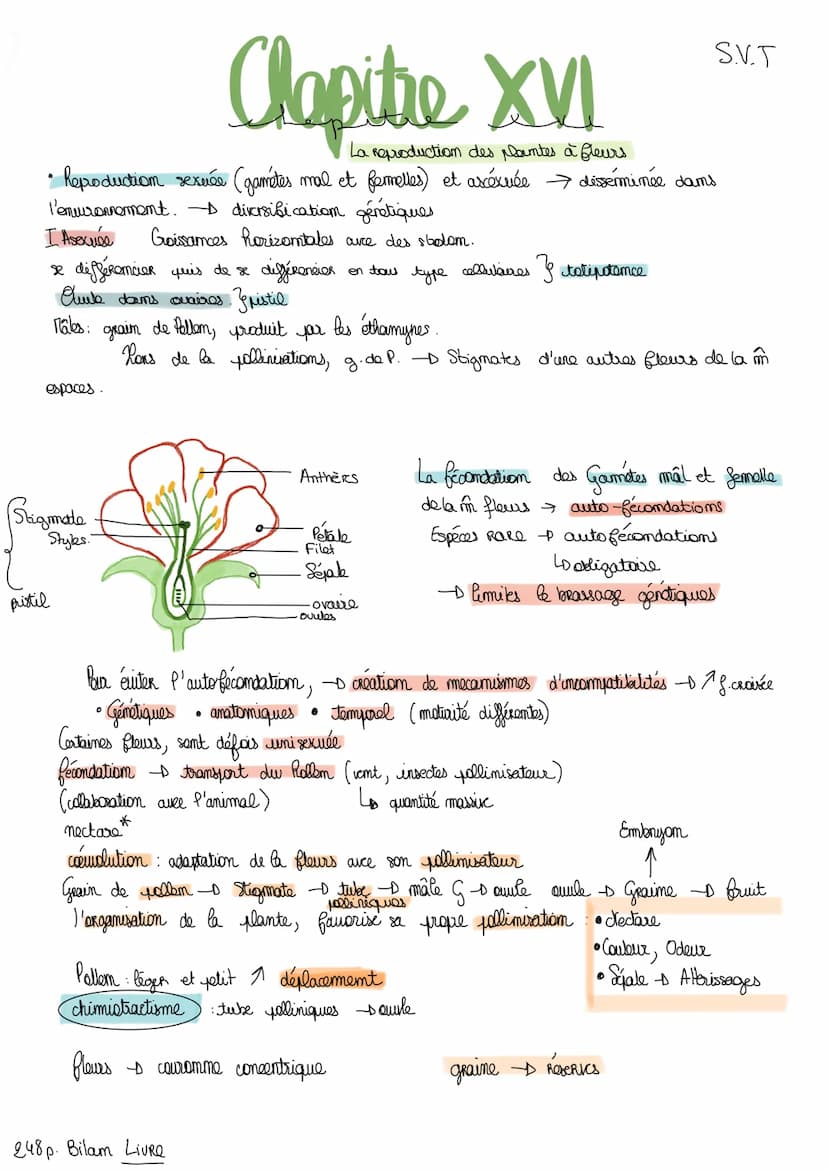 S.V.T
Chapitre XVI
chapitre xvi
La reproduction des plantes à fleurs
• Reproduction sexuée (gamétes mal et femelles) et aséxuée → dissérminée dans
l'environnement. → diversification génétiques
I Asexuée Croissances horizontales avec des stolom.
se différencier puis de se différencier en tous type cellulaires } totipotance
Ovule dans ovaires. } pistil
Mâles: grain de Pollen, produit par les éthamynes.
Lors de la pollinisations, g. de P. → Stigmates d'une autres fleurs de la m̂
espaces.
Anthèrs
Stigmate
Styles.
Pétale
Filet
Sépale
pistil
ovaire
ovules
La fécondation des Gamétes mâl et femelle
de la m̂ fleurs → auto-fécondations
Espéces RARE → autofécondations
↳ obligatoire
→ limites le brassage génétiques
Pour éviter l'autofécondation, → création de mecanismes d'incompatibilités → ↗ f. croisée
• Génétiques • anatomiques • temporel (maturité différentes)
Certaines fleurs, sont défois unisexuée
fécondation → transport du Pollen (vent, insectes pollinisateur)
(collaboration avec l'animal) ↳ quantité massive
nectare*
Embryom
coévolution : adaptation de la fleurs avec son pollinisateur
Grain de pollen → Stigmate → tube polliniques → mâle G → ovule ovule → Graine → fruit
l'organisation de la plante, favorise sa propre pollinisation : • Nectare
• Couleur, Odeur
• Sépale → Attérissages
Pollen : léger et petit ↗ déplacement
chimiotractisme : tube polliniques → ovule
fleurs → couronne concentrique
graine → RÉSERVES
248p. Bilan LIVRE